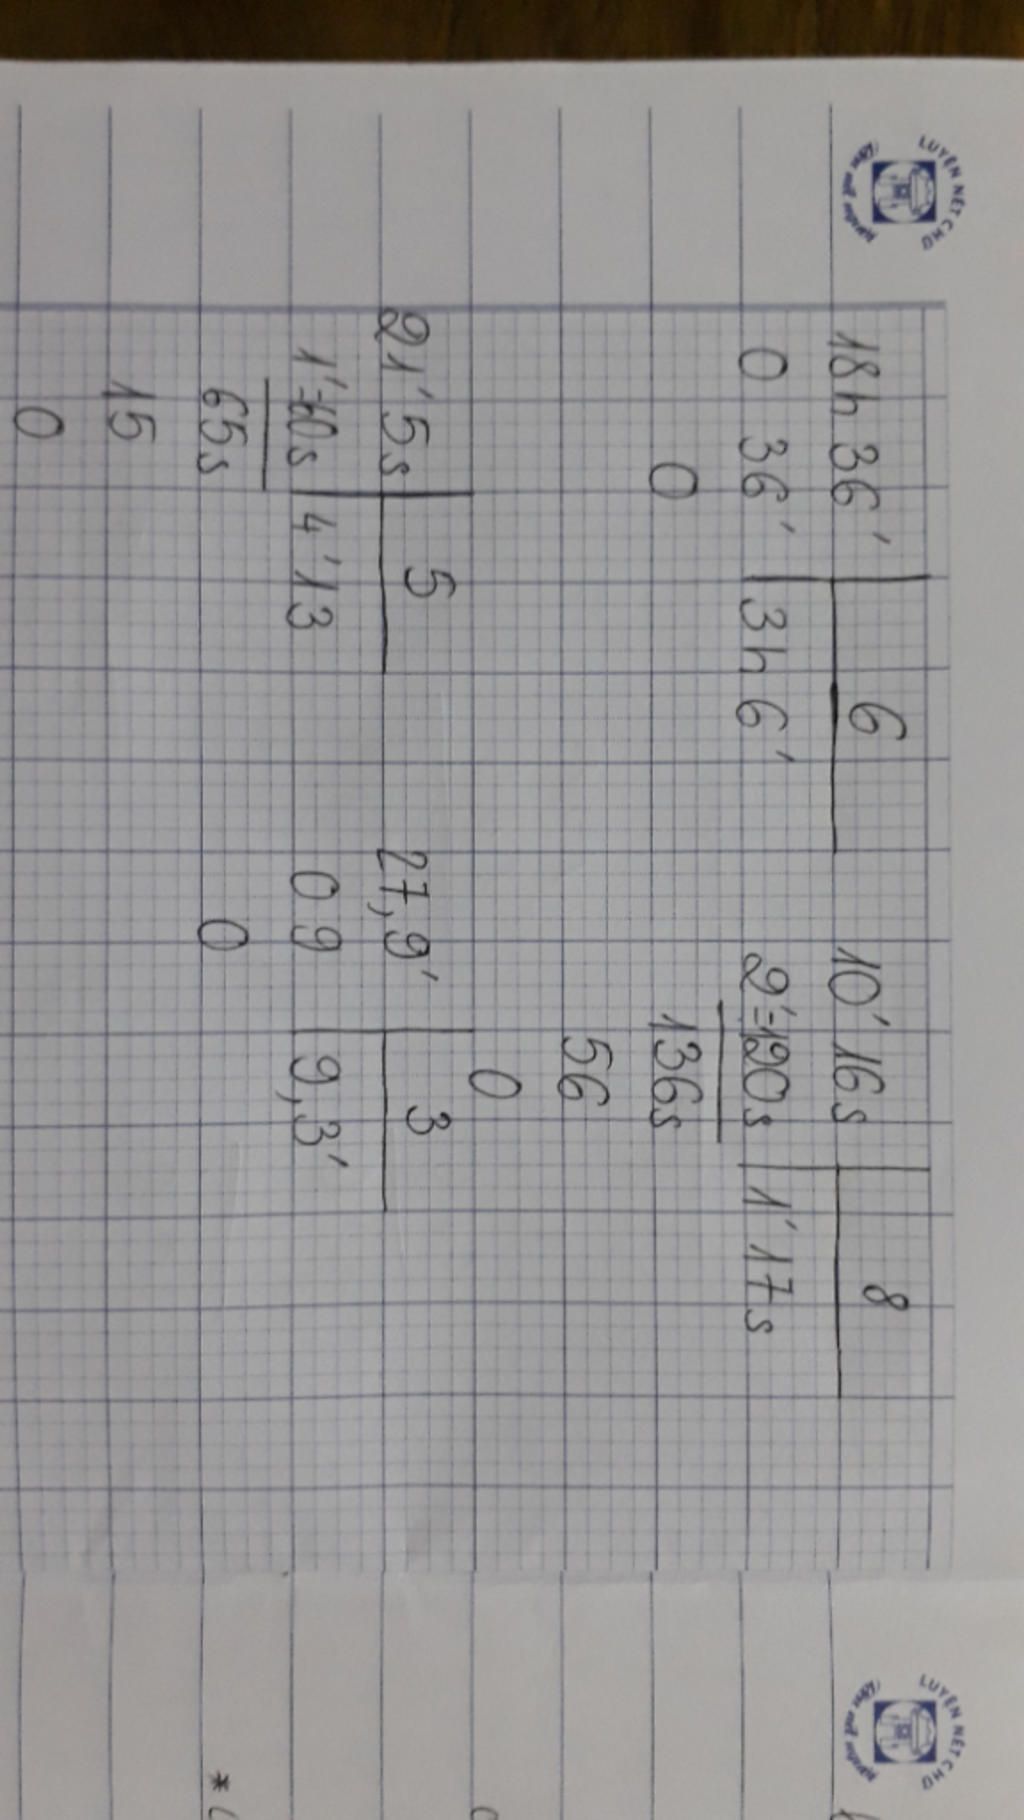 LUYỆN NÉT CHỮ
18h 36' 6
0 36' 3h 6'
0
10' 16s 8
2'=120s 1' 17s
136s
56
0
21' 5s 5
1'=60s 4' 13
65s
15
0
27,9' 3
0 9 9,3'
0
LUYỆN NÉT CHỮ
*